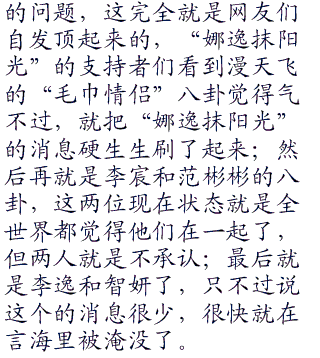 的问题，这完全就是网友们
自发顶起来的，“娜逸抹阳
光”的支持者们看到漫天飞
的“毛巾情侣”八卦觉得气
不过，就把“娜逸抹阳光”
的消息硬生生刷了起来；然
后再就是李宸和范彬彬的八
卦，这两位现在状态就是全
世界都觉得他们在一起了，
但两人就是不承认；最后就
是李逸和智妍了，只不过说
这个的消息很少，很快就在
言海里被淹没了。